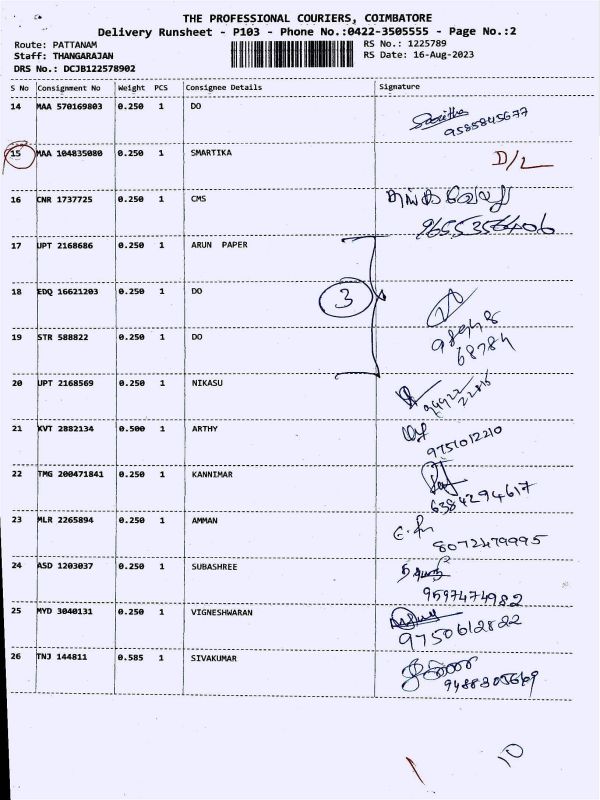 THE PROFESSIONAL COURIERS, COIMBATORE
Delivery Runsheet - P103 - Phone No.:0422-3505555 - Page No.:2
Route: PATTANAM RS No.: 1225789
Staff: THANGARAJAN RS Date: 16-Aug-2023
DRS No.: DCJB122578902
S No Consignment No Weight PCS Consignee Details Signature
14 MAA 570169803 0.250 1 DO
9585845677
15 MAA 104835080 0.250 1 SMARTIKA D/L
16 CNR 1737725 0.250 1 CMS
9655356406
17 UPT 2168686 0.250 1 ARUN PAPER
18 EDQ 16621203 0.250 1 DO 3
19 STR 588822 0.250 1 DO
68784
20 UPT 2168569 0.250 1 NIKASU
21 KVT 2882134 0.500 1 ARTHY
9751012210
22 TMG 200471841 0.250 1 KANNIMAR
6384294617
23 MLR 2265894 0.250 1 AMMAN
8072479995
24 ASD 1203037 0.250 1 SUBASHREE
9597474982
25 MYD 3040131 0.250 1 VIGNESHWARAN
9750612822
26 TNJ 144811 0.585 1 SIVAKUMAR
10